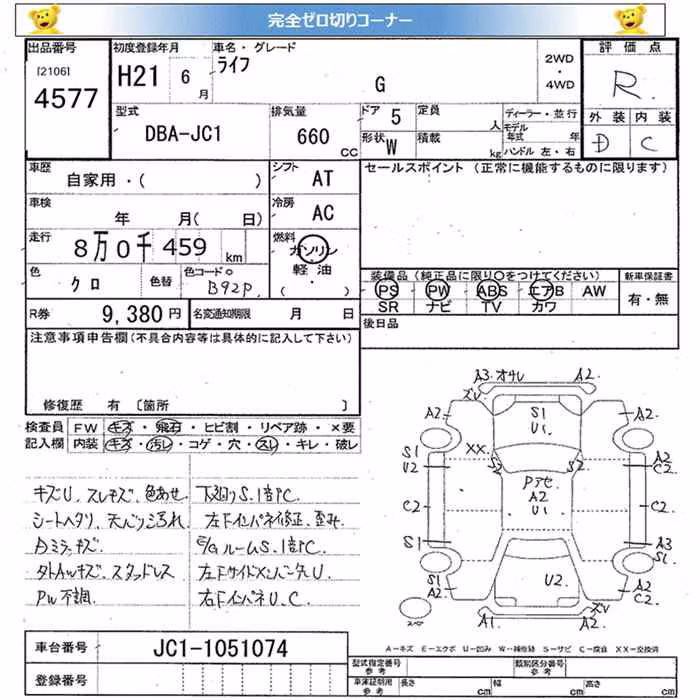 完全ゼロ切りコーナー
出品番号 初度登録年月 車名・グレード 評価点
[2106] H21 6月 ライフ G 2WD・4WD R
4577
型式 排気量 ドア 5 定員 人 ディーラー・並行 外装 内装
DBA-JC1 660 CC 形状 W 積載 kg モデル年式 年 D C
ハンドル 左・右
車歴 シフト セールスポイント (正常に機能するものに限ります)
自家用・( ) AT
車検 冷房
年 月( 日) AC
走行 燃料
8万0千459 km ガソリン・軽油・( )
色 色替 色コードNo 装備品 (純正品に限り○をつけてください) 新車保証書
クロ B92P PS PW ABS エアB AW 有・無
SR ナビ TV カワ
R券 9,380円 名変通知期限 月 日 後日品
注意事項申告欄(不具合内容等は具体的に記入して下さい)
修復歴 有 〔箇所 〕
検査員記入欄 FW キズ・飛石・ヒビ割・リペア跡・×要
内装 キズ・汚レ・コゲ・穴・スレ・キレ・破レ
キズU、スレキズ、色あせ
シートヘタリ、天バリ汚れ
Dミラーキズ
タトAwキズ、スタッドレス
PW不調
下廻りS、1部P.C
左FインパネS修正、歪み
E/GルームS、1部P.C
左FサイドメンバーチU
右FインパネU、C
A3 オサレ A2
ズU
A2 S1 U1 A2
S1 U2 XX S2 S2 A2 C2
Pアセ A2 U1
C2 C2
S1 A3 S1
S1 A2 U2 A2 C2
A1 A2 ズU
A-キズ E-エクボ U-凹み W-補修跡 S-サビ C-腐食 XX-交換済
車台番号 JC1-1051074
登録番号
型式指定番号 参考 類別区分番号 参考
車庫証明用 参考 長さ cm 幅 cm 高さ cm